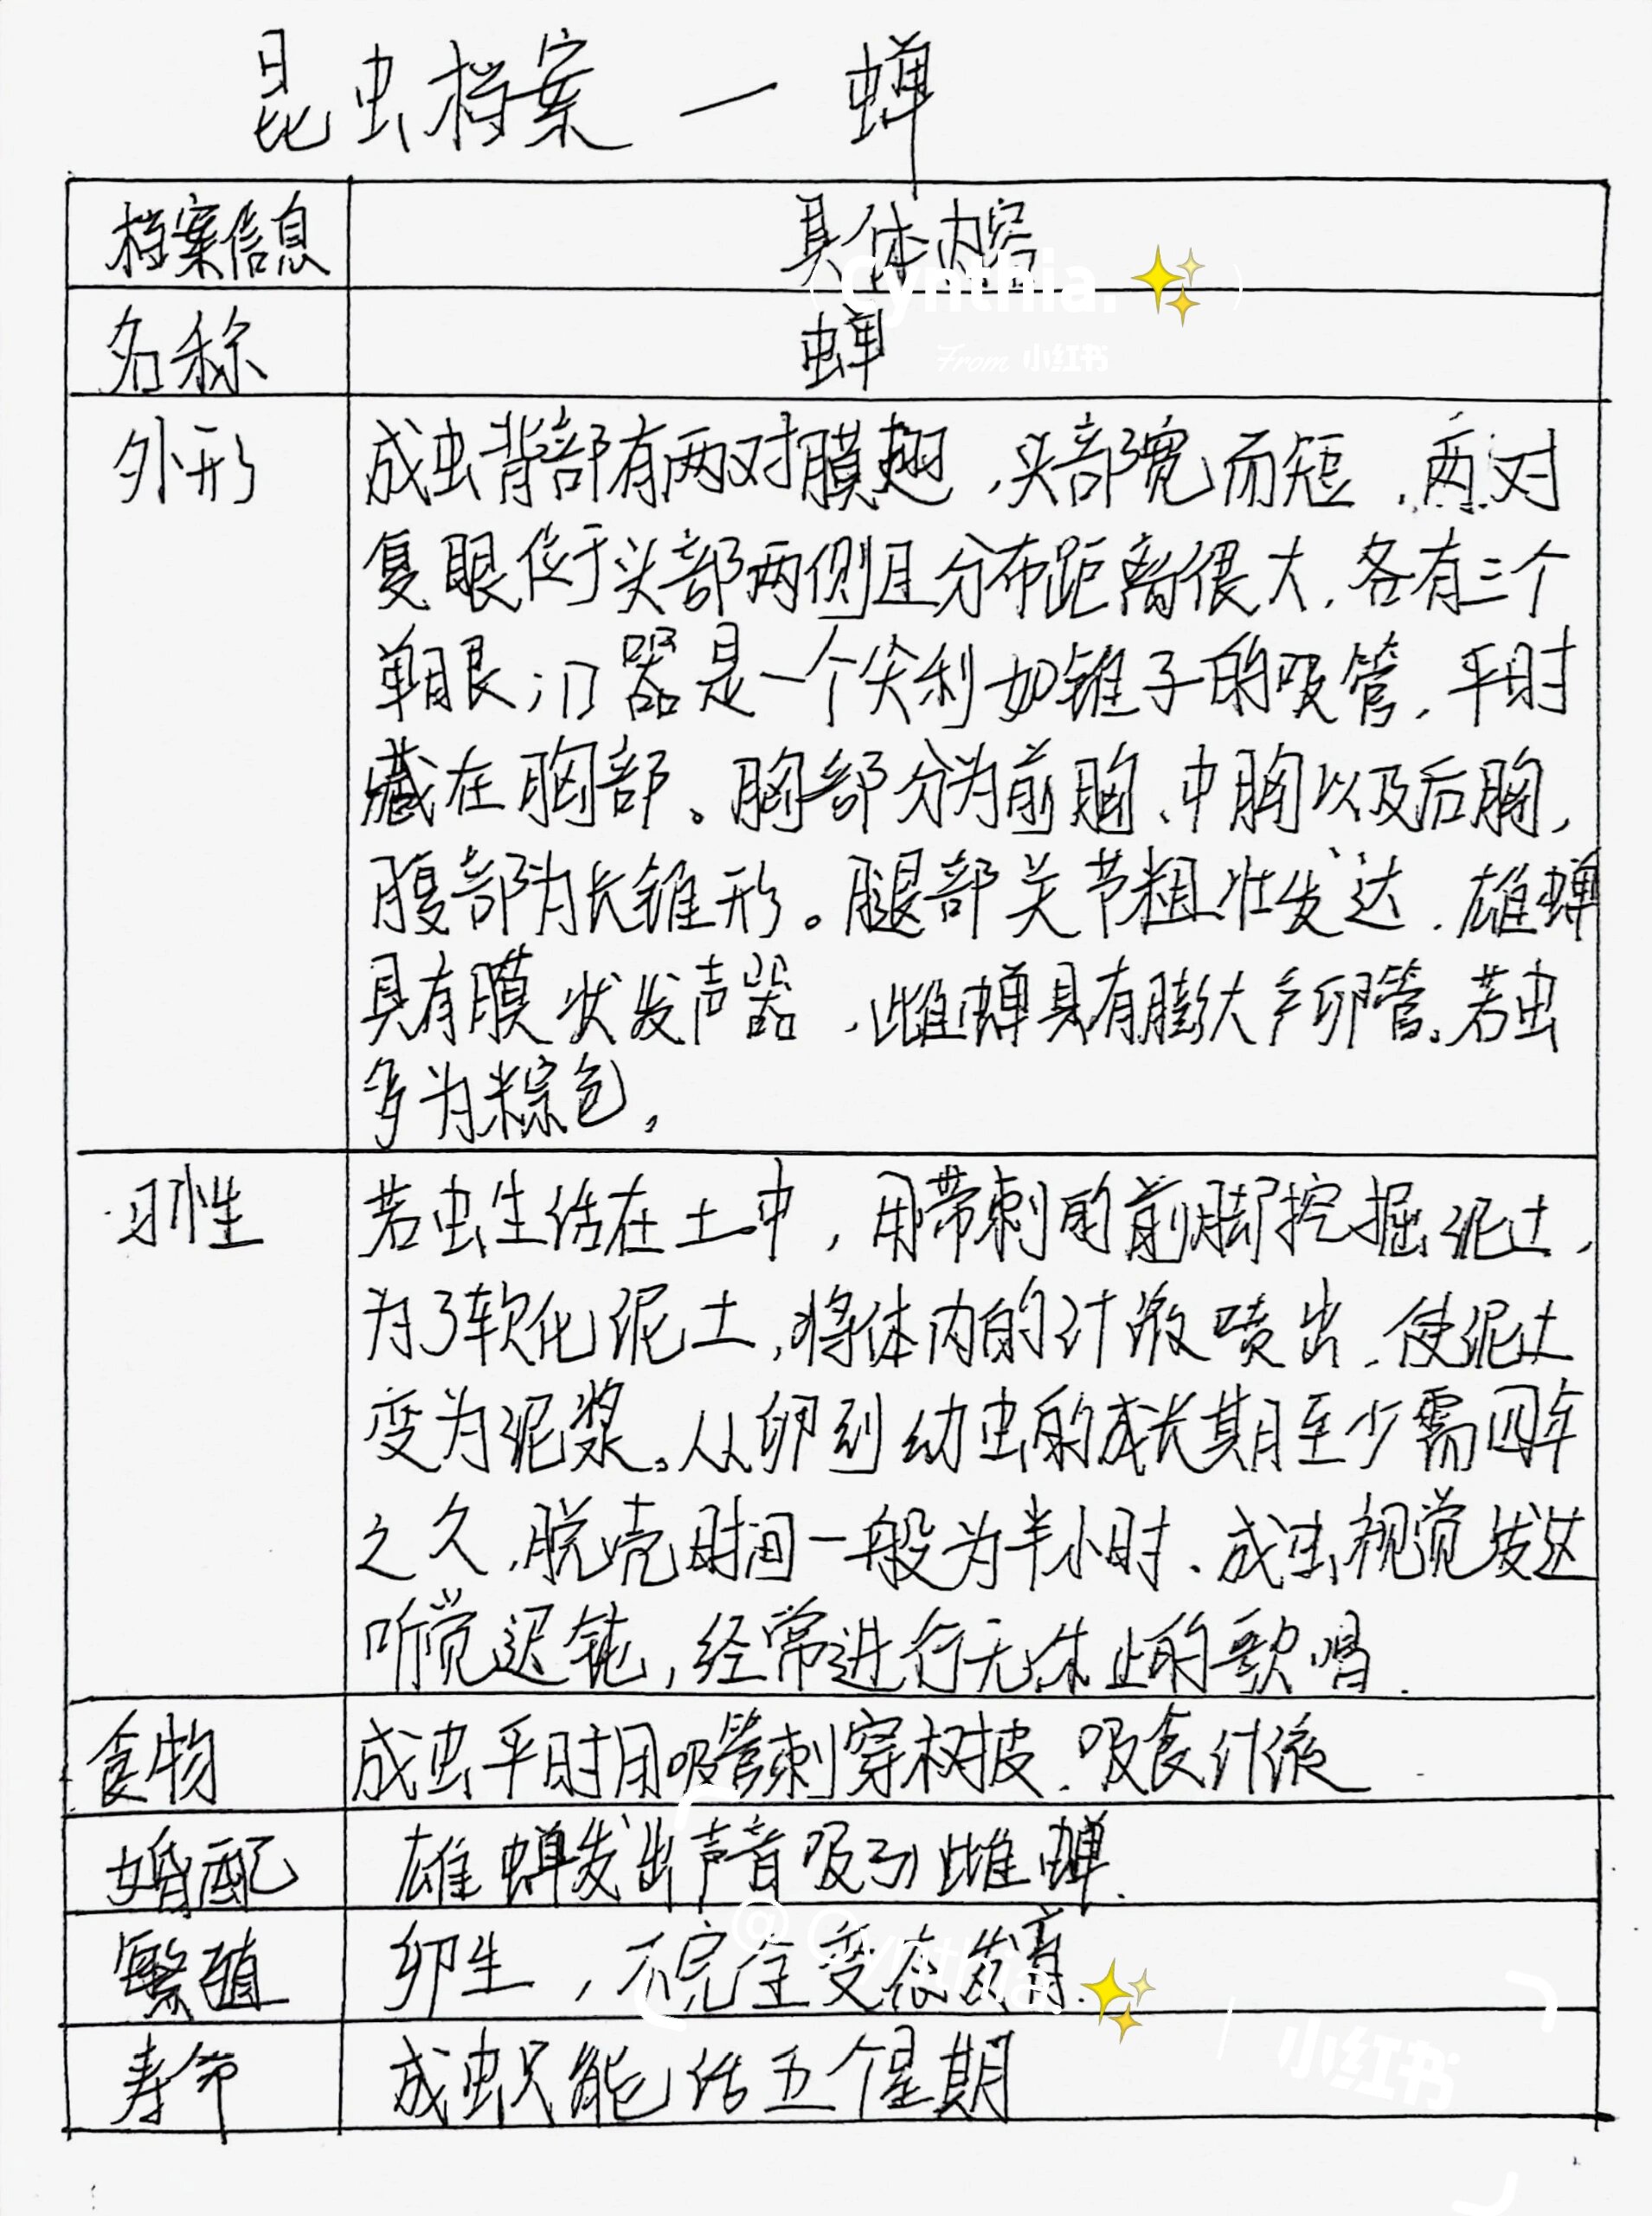 昆虫档案一蝉
档案信息 具体内容
Cynthia.
名称 蝉
From 小红书
外形 成虫背部有两对膜翅，头部宽而短，两对
复眼位于头部两侧且分布距离很大，各有三个
单眼；口器是一个尖利如锥子的吸管，平时
藏在胸部。胸部分为前胸、中胸以及后胸，
腹部为长锥形。腿部关节粗壮发达，雄蝉
具有膜状发声器，雌蝉具有膨大产卵管。若虫
多为棕色，
习性 若虫生活在土中，用带刺的前脚挖掘泥土，
为了软化泥土，将体内的汁液喷出，使泥土
变为泥浆。从卵到幼虫的成长期至少需四年
之久，脱壳时间一般为半小时、成虫视觉发达
听觉迟钝，经常进行无休止的歌唱.
食物 成虫平时用吸管刺穿树皮.吸食汁液
婚配 雄蝉发出声音吸引雌蝉.
@Cynthia.
繁殖 卵生，不完全变态发育.
小红书
寿命 成虫只能活五个星期